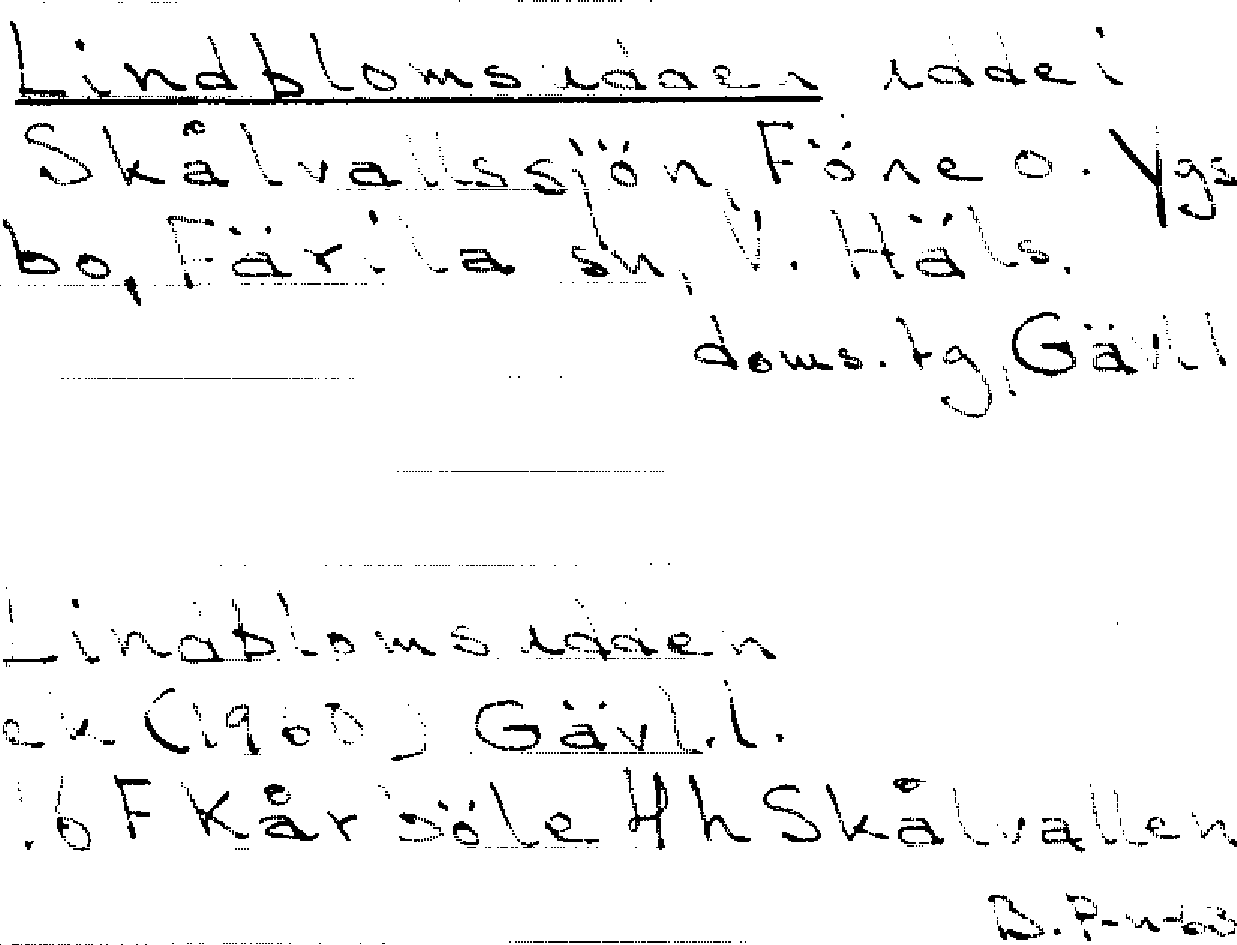 Lindblomsudden udde i
Skålvallssjön, Före o. Ygs
bo, Färila sn, V. Häls.
doms. tg, Gävl l
Lindblomsudden
ek (1960) Gävl.l.
16 F Kårböle 4h Skålvallen